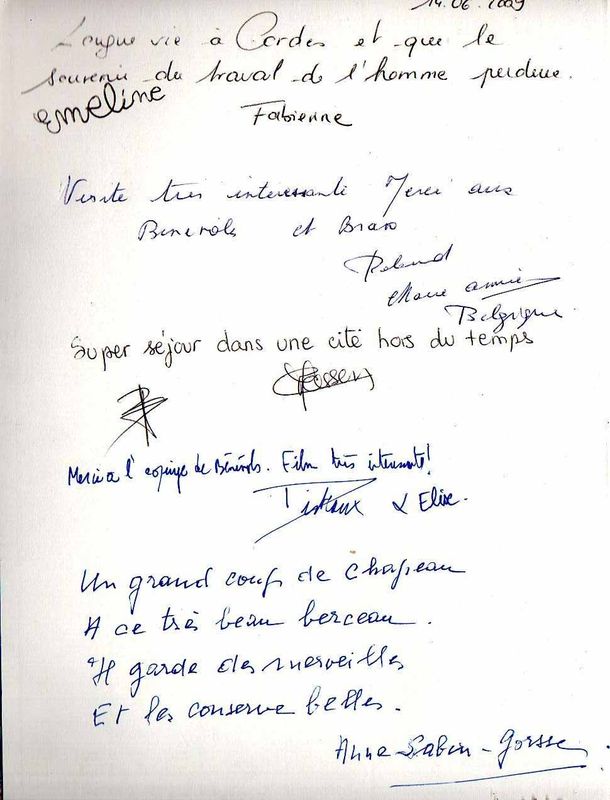 14.06.2009
Longue vie à Cordes et que le
souvenir du travail de l'homme perdure.
Emeline
Fabienne
Visite très interessante Merci aux
Benevols et Bravo
Roland
Marie annie
Belgique
Super séjour dans une cité hors du temps
Merci a l'équipe de Bénévols. Film très interessant!
& Elise.
Un grand coup de chapeau
A ce très beau berceau.
Il garde des merveilles
Et les conserve belles.
Anne Sabin-Gorsse